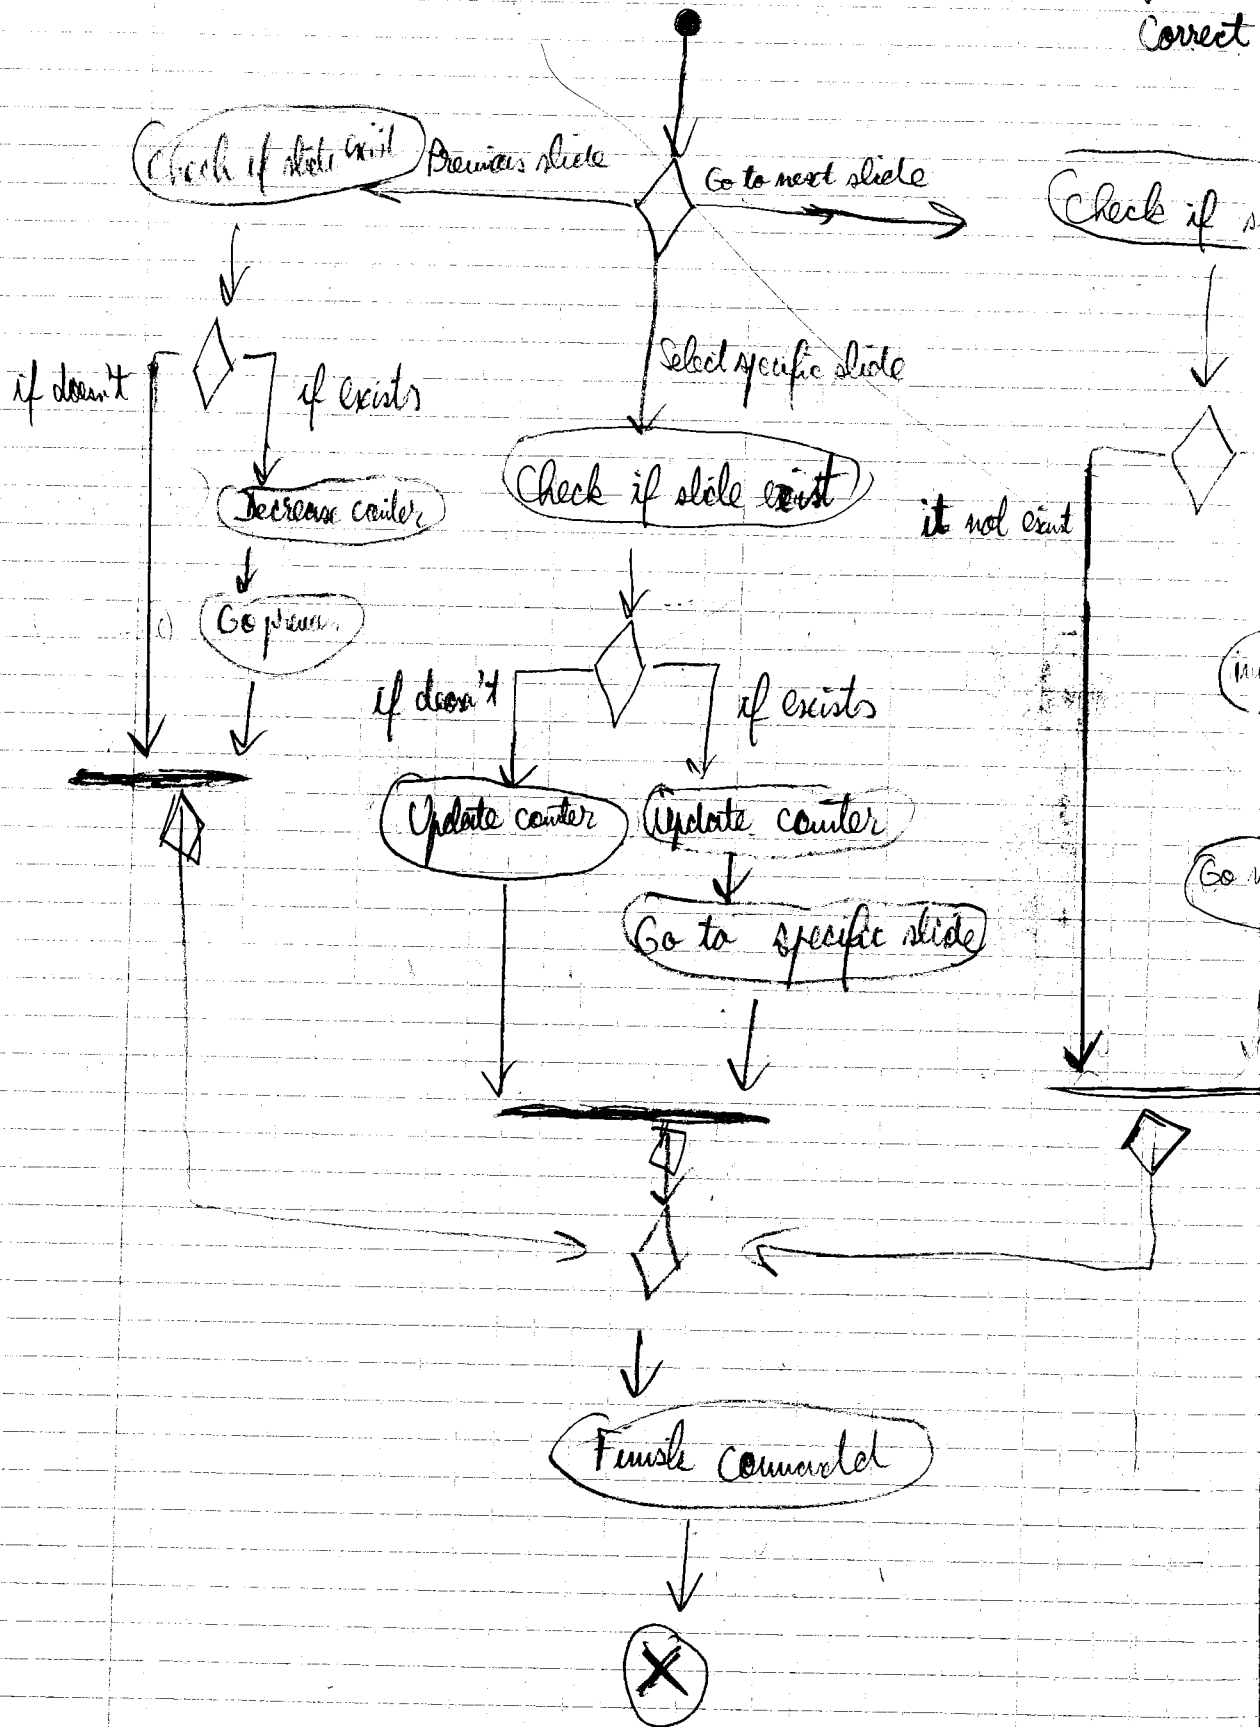 Correct
Check if slide exist
Previous slide
Go to next slide
Check if s
if doesn't
if exists
Select specific slide
Decrease counter
Check if slide exist
it not exist
Go
if doesn't
if exists
Update counter
Update counter
Go
Go to specific slide
Finish